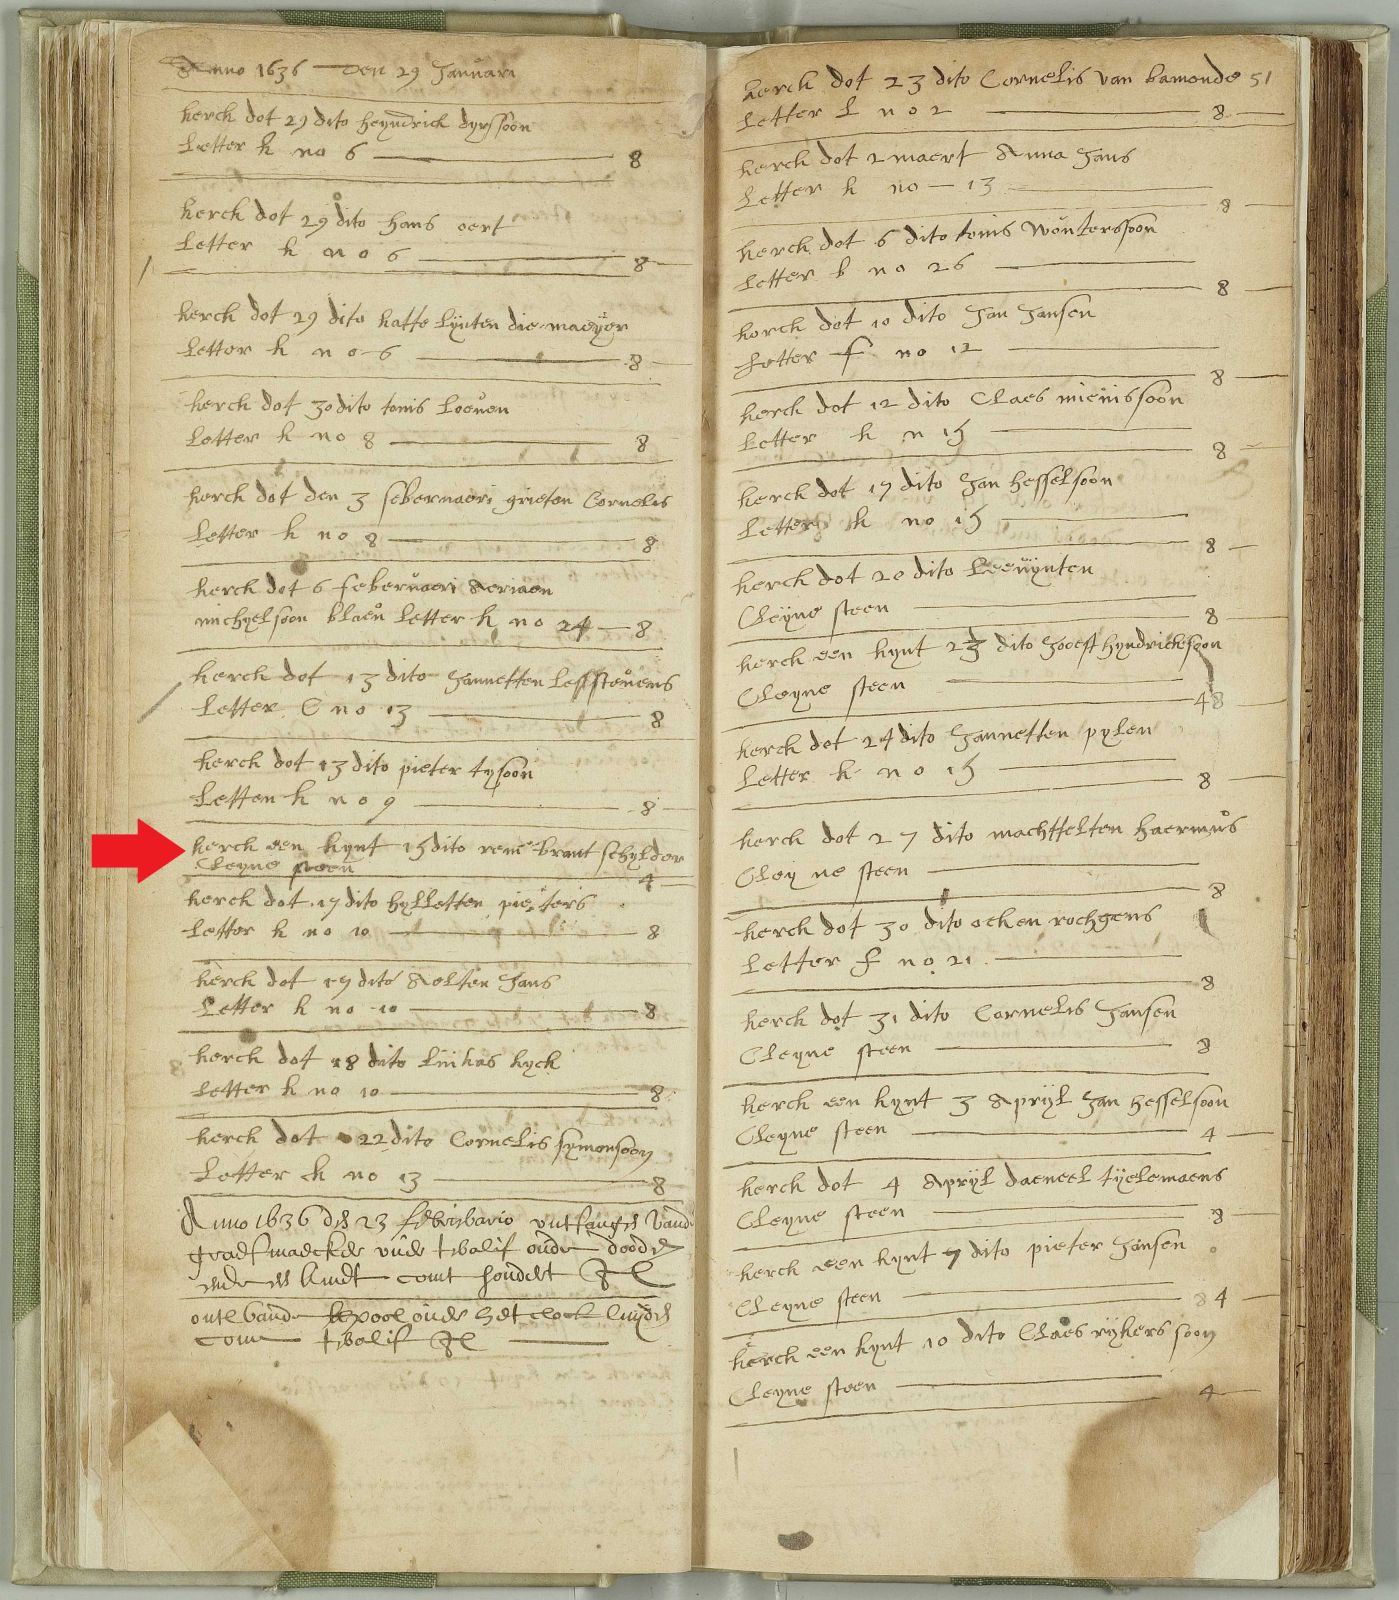 Anno 1636 den 29 Januari
kerck dot 29 dito heyndrick dyrssoon
Letter k no 6 8
kerck dot 29 dito hans oert
Letter k no 6 8
kerck dot 29 dito katte Lijnten die maeijer
Letter k no 6 8
kerck dot 30 dito tonis Loeuen
Letter k no 8 8
kerck dot den 3 febernaeri grieten Cornelis
Letter k no 8 8
kerck dot 6 febervaeri Aeriaen
michyelsoon blaeu Letter k no 24 8
kerck dot 13 dito Jannetten
Letter no 13 8
kerck dot 13 dito pieter tysoon
Letter k no 9 8
kerck een kynt 15 dito remebrant schylder
Cleyne steen 4
kerck dot 17 dito hylletten pieters
Letter k no 10 8
kerck dot 17 dito Aelten Jans
Letter k no 10 8
kerck dot 18 dito kyck
Letter k no 10 8
kerck dot 22 dito Cornelis symonsoon
Letter k no 13 8
Anno 1636 den 23 februario ontfangen vande
kindt comt
comt
kerck dot 23 dito Cornelis van bamonde 51
Letter L no 2 8
kerck dot 2 maert Anna Jans
Letter k no 13 8
kerck dot 6 dito tonis wouterssoon
Letter b no 26 8
kerck dot 10 dito Jan Jansen
Letter f no 12 8
kerck dot 12 dito Claes
Letter k n 15 8
kerck dot 17 dito Jan hesselsoon
Letter k no 15 8
kerck dot 20 dito Leeuijnten
Cleijne steen 8
kerck een kynt 23 dito Jooest hyndricksoon
Cleyne steen 48
kerck dot 24 dito Jannetten pylen
Letter k no 15 8
kerck dot 27 dito machttelten haermus
Cleyne steen 8
kerck dot 30 dito ocken rochgens
Letter f no 21 8
kerck dot 31 dito Cornelis Jansen
Cleyne steen 8
kerck een kynt 3 Aprijl Jan hesselsoon
Cleyne steen 4
kerck dot 4 Aprijl daeneel tijelemaens
Cleyne steen 8
kerck een kynt 7 dito pieter Jansen
Cleyne steen 8 4
kerck een kynt 10 dito Claes rijkerssoon
Cleyne steen 4